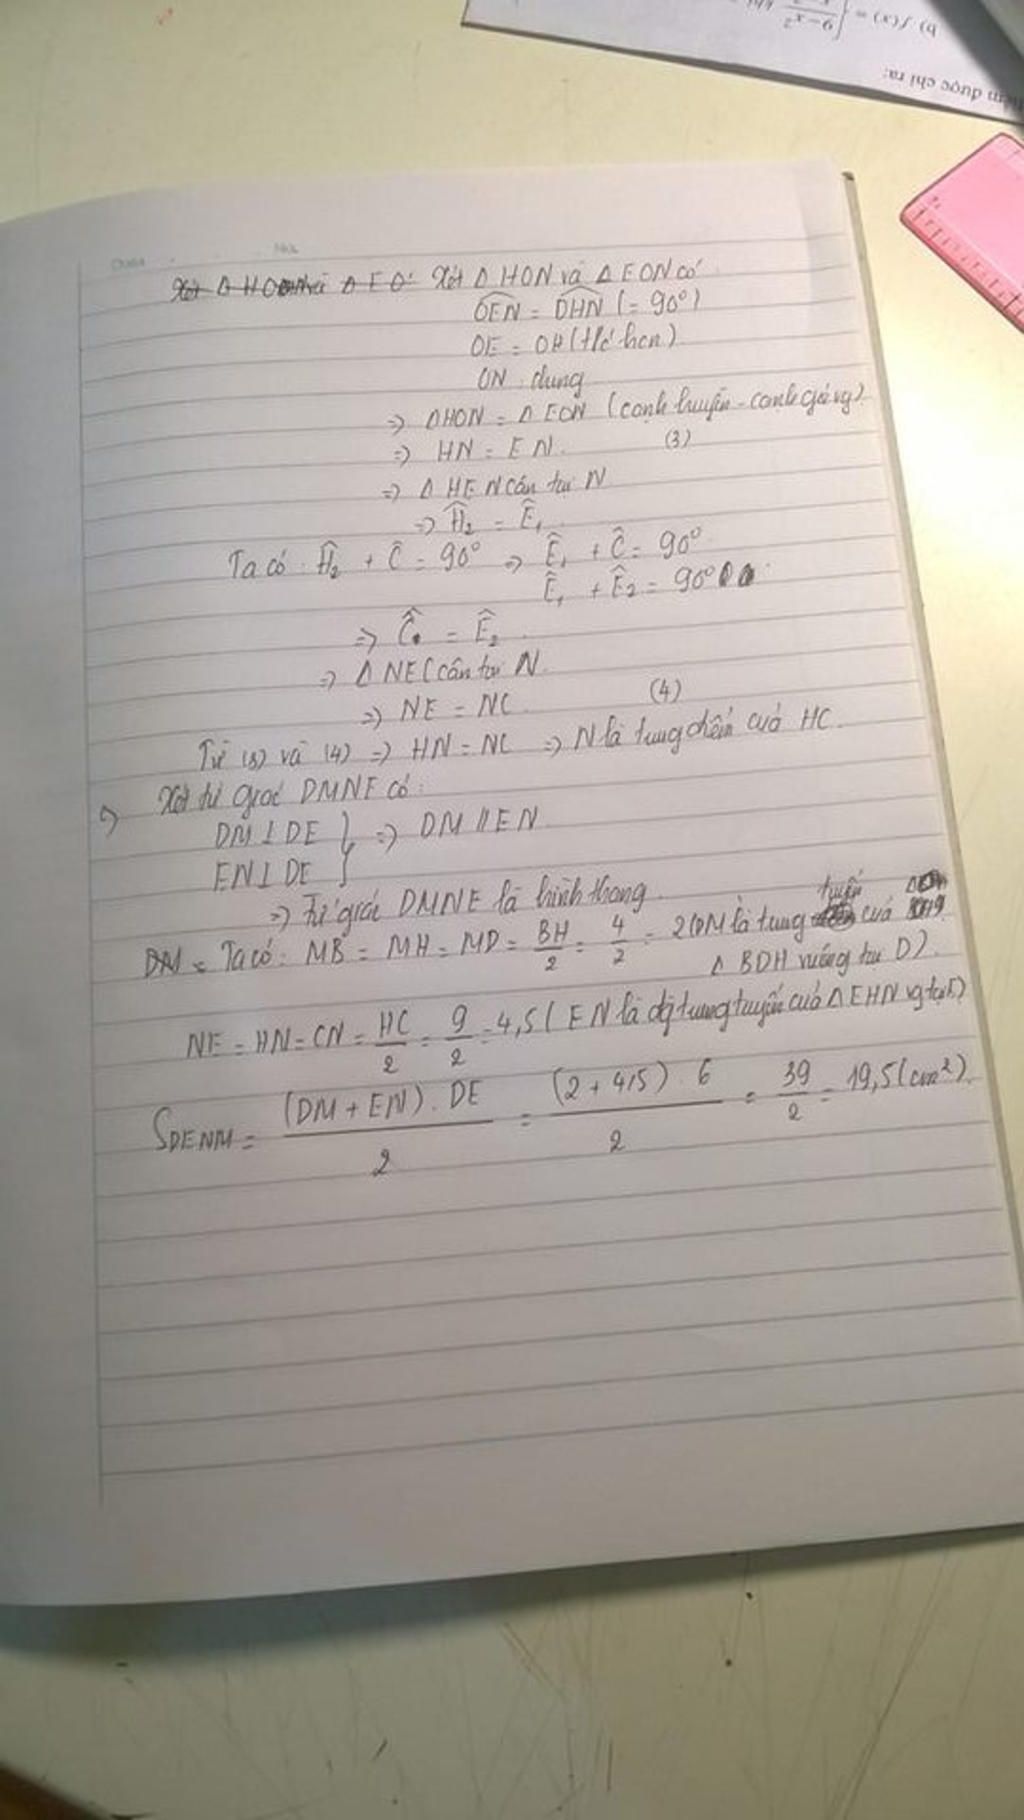 b) f(x) =
9-x²
được chỉ ra:
Xét Δ HON và Δ EON có
OEN = OHN (= 90°)
OE = OH (t/c hcn)
ON chung
=> ΔHON = Δ EON (cạnh huyền - cạnh góc vg)
=> HN = EN. (3)
=> Δ HEN cân tại N
=> Ĥ₂ = Ê₁
Ta có: Ĥ₂ + Ĉ = 90° => Ê₁ + Ĉ = 90°
Ê₁ + Ê₂ = 90°
=> Ĉ = Ê₂
=> Δ NEC cân tại N.
=> NE = NC (4)
Từ (3) và (4) => HN = NC => N là trung điểm của HC.
Xét tứ giác DMNE có:
DM ⊥ DE } => DM // EN
EN ⊥ DE
=> Tứ giác DMNE là hình thang.
Ta có: MB = MH = MD = BH/2 = 4/2 = 2 (DM là trung tuyến của
Δ BDH vuông tại D).
NE = HN = CN = HC/2 = 9/2 = 4,5 (EN là đg trung tuyến của Δ EHN vg tại E)
S_DENM = (DM + EN) . DE / 2 = (2 + 4,5) . 6 / 2 = 39/2 = 19,5 (cm²).